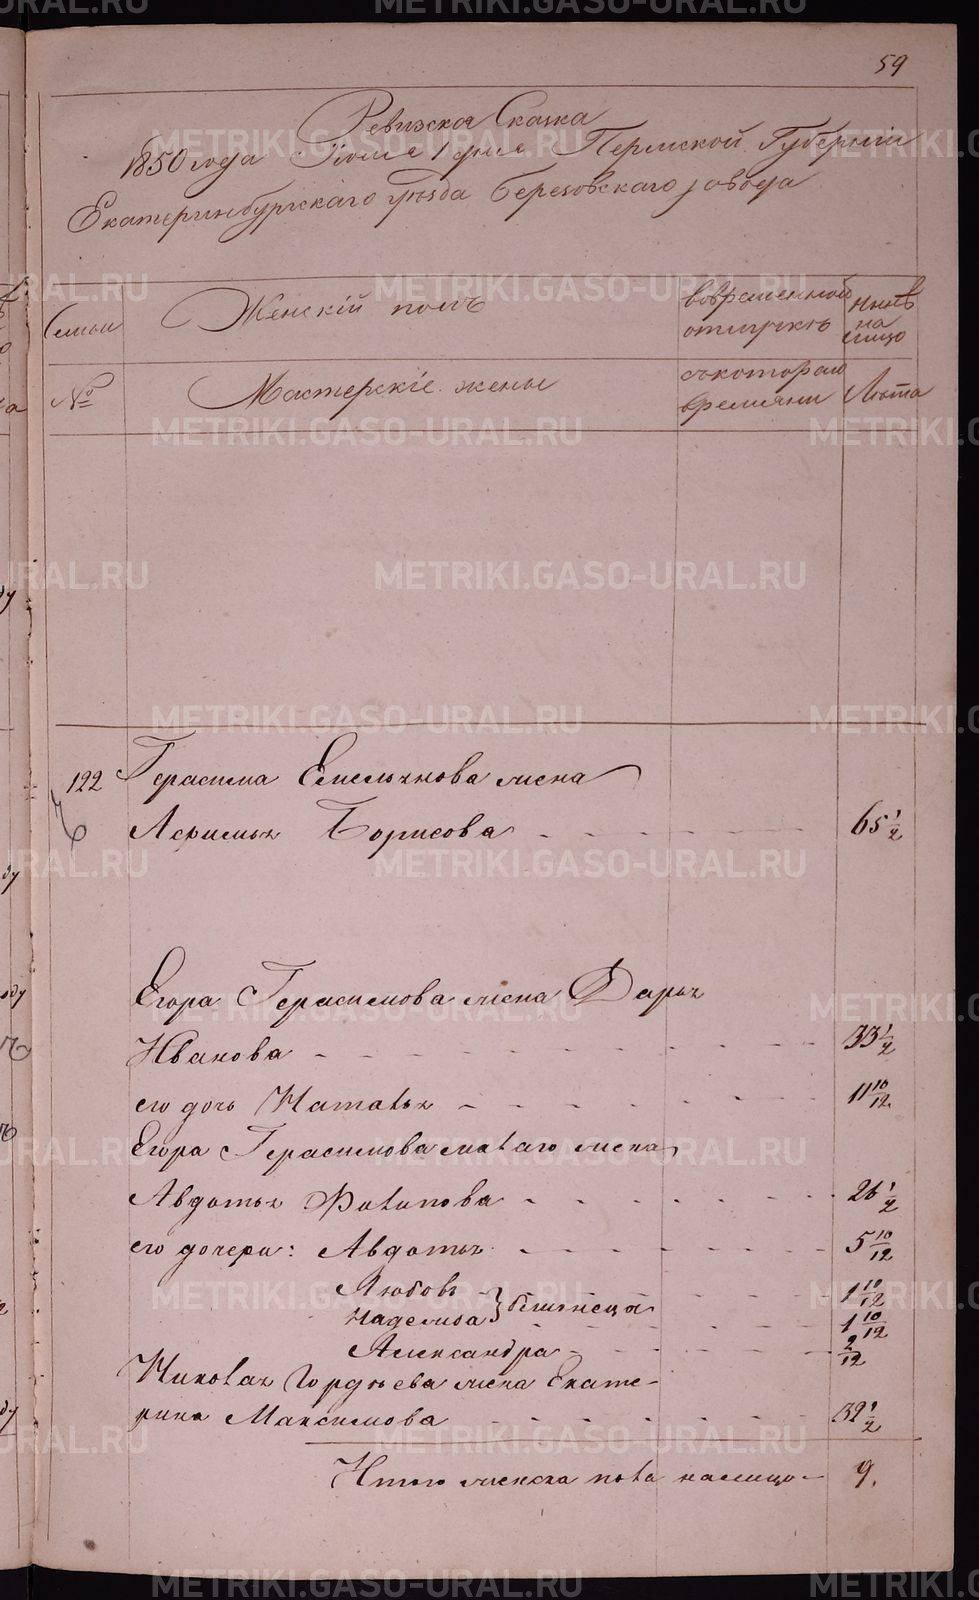 59
Ревизская Сказка
1850 года Июня 1 дня Пермской Губернiи
Екатеринбургскаго уѣзда Березовскаго завода
Семьи
Женскiй полъ
вовременной
отлучкѣ
Нынѣ
на
лицо
№
Мастерскiе жены
съкотораго
времяни
Лѣта
122
Герасима Емельянова жена
Борисова
65 1/2
Егора Герасимова жена Дарья
Иванова
33 1/2
его дочь Наталья
11 10/12
Егора Герасимова малаго жена
Авдотья Филипова
26 1/2
его дочери: Авдотья
5 10/12
Любовь
1 10/12
Надежда } близнецы
1 10/12
Александра
2/12
Николая Гордѣева жена Екате-
рина Максимова
39 1/2
Итого женска пола налицо
9.
METRIKI.GASO-URAL.RU